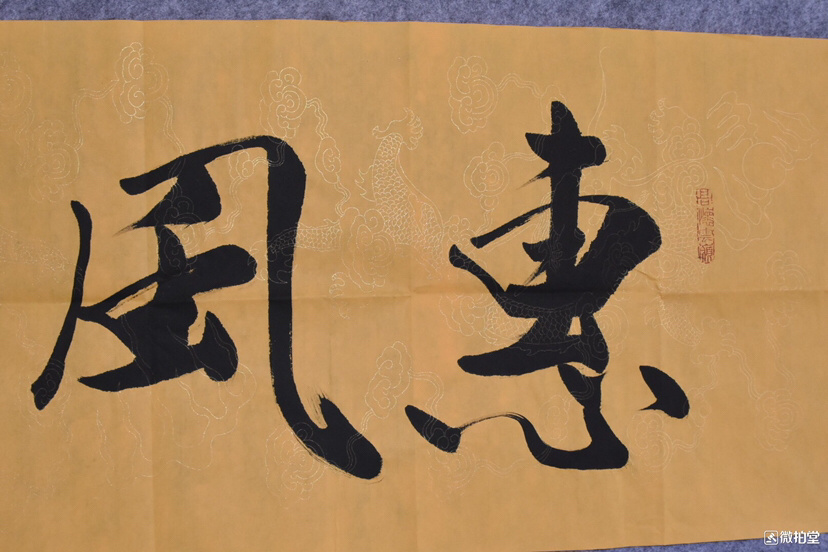 惠風
微拍堂